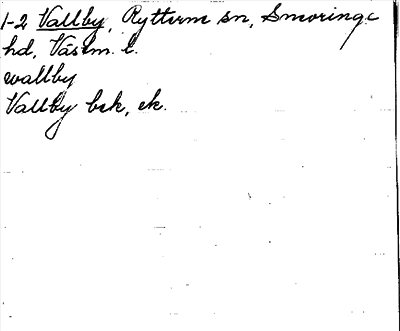 1-2 Vallby, Rytterne sn, Snevringe
hd, Västm. l.
wallby
Vallby bek, ek.